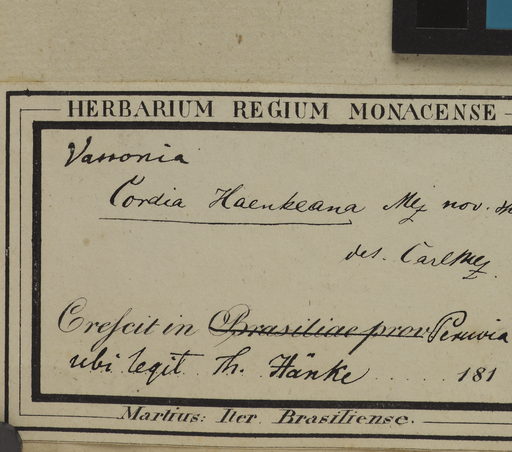 HERBARIUM REGIUM MONACENSE
Varronia
Cordia Haenkeana Mez nov. sp
det. Carl Mez.
Crescit in Brasiliae prov Peruvia
ubi legit Th. Hänke ...... 181
Martius: Iter Brasiliense.